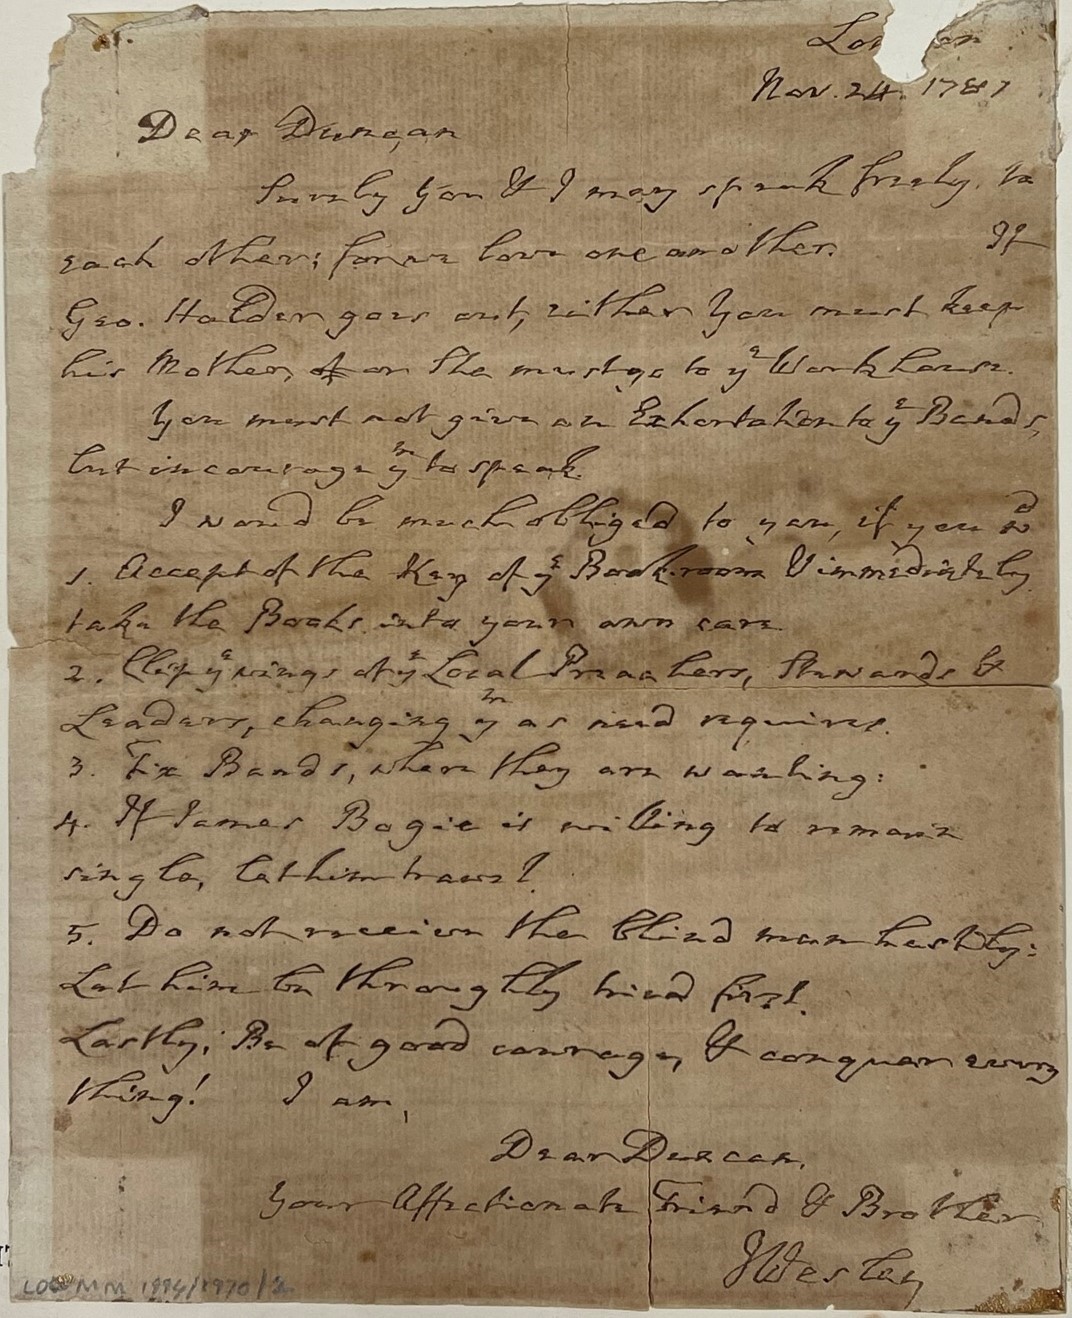 Lo    on
Nov. 24. 1787
Dear Duncan
Surely You & I may speak freely to
each other; for we love one another. If
Geo. Holder goes out, either You must keep
his Mother, or She must go to yͤ Workhouse.
You must not give an Exhortation to yͤ Bands,
but incourage yͫ to speak.
I woud be much obliged to you, if you wͩ
1. Accept of the Key of yͤ Book-room & immediately
take the Books into your own care
2. Clip yͤ wings of yͤ Local Preachers, Stewards &
Leaders, changing yͫ as need requires.
3. Fix Bands, where they are wanting:
4. If James Bogie is willing to remain
single, let him travel
5. Do not receive the blind man hastily:
Let him be throughly tried first.
Lastly; Be of good courage, & conquer every
thing! I am,
Dear Duncan,
Your Affectionate Friend & Brother
JWesley
MM 1994/1970/2